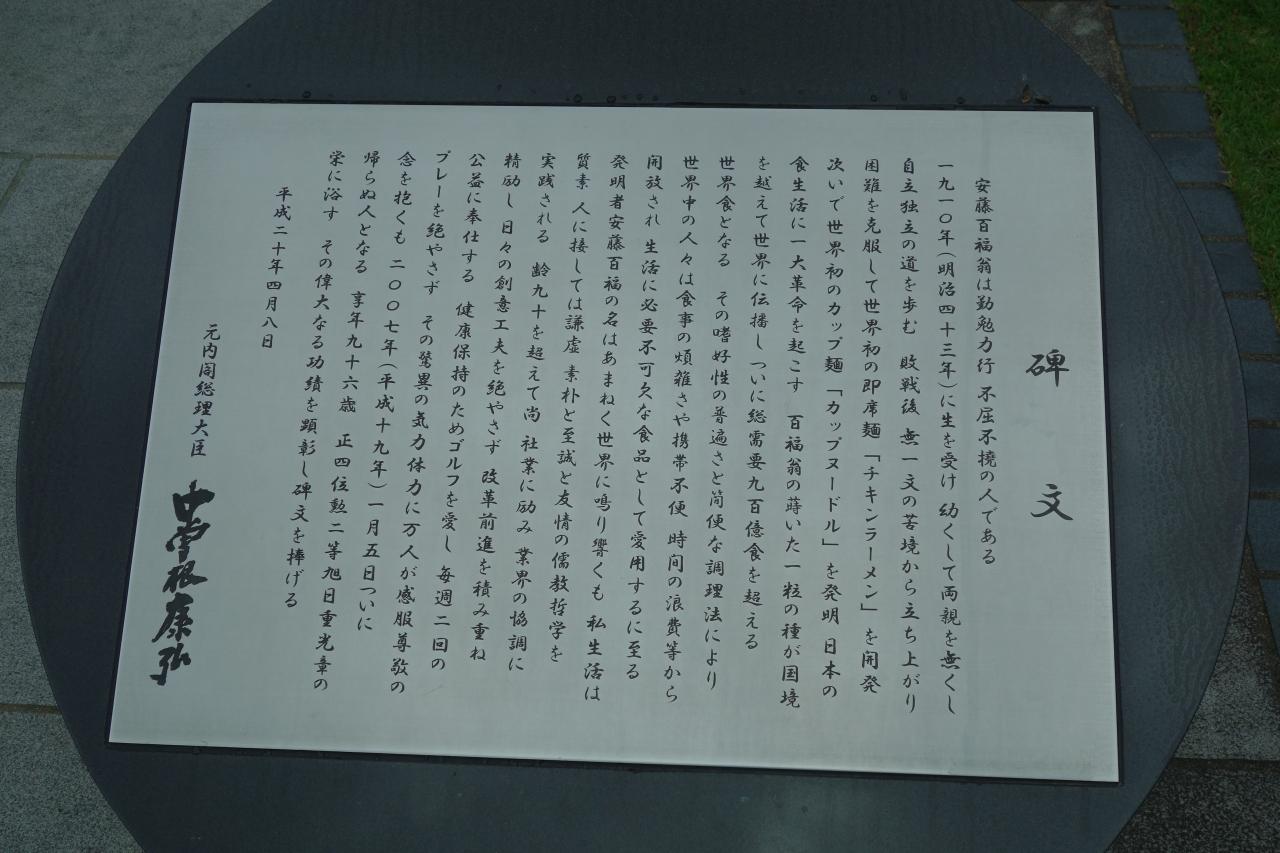 碑文
安藤百福翁は勤勉力行 不屈不撓の人である
一九一〇年（明治四十三年）に生を受け 幼くして両親を無くし
自立独立の道を歩む 敗戦後 無一文の苦境から立ち上がり
困難を克服して世界初の即席麺「チキンラーメン」を開発
次いで世界初のカップ麺「カップヌードル」を発明 日本の
食生活に一大革命を起こす 百福翁の蒔いた一粒の種が国境
を越えて世界に伝播し ついに総需要九百億食を超える
世界食となる その嗜好性の普遍さと簡便な調理法により
世界中の人々は食事の煩雑さや携帯不便 時間の浪費等から
開放され 生活に必要不可欠な食品として愛用するに至る
発明者安藤百福の名はあまねく世界に鳴り響くも 私生活は
質素 人に接しては謙虚 素朴と至誠と友情の儒教哲学を
実践される 齢九十を超えて尚 社業に励み 業界の協調に
精励し 日々の創意工夫を絶やさず 改革前進を積み重ね
公益に奉仕する 健康保持のためゴルフを愛し 毎週二回の
プレーを絶やさず その驚異の気力体力に万人が感服尊敬の
念を抱くも 二〇〇七年（平成十九年）一月五日ついに
帰らぬ人となる 享年九十六歳 正四位勲二等旭日重光章の
栄に浴す その偉大なる功績を顕彰し碑文を捧げる
平成二十年四月八日
元内閣総理大臣 中曽根康弘